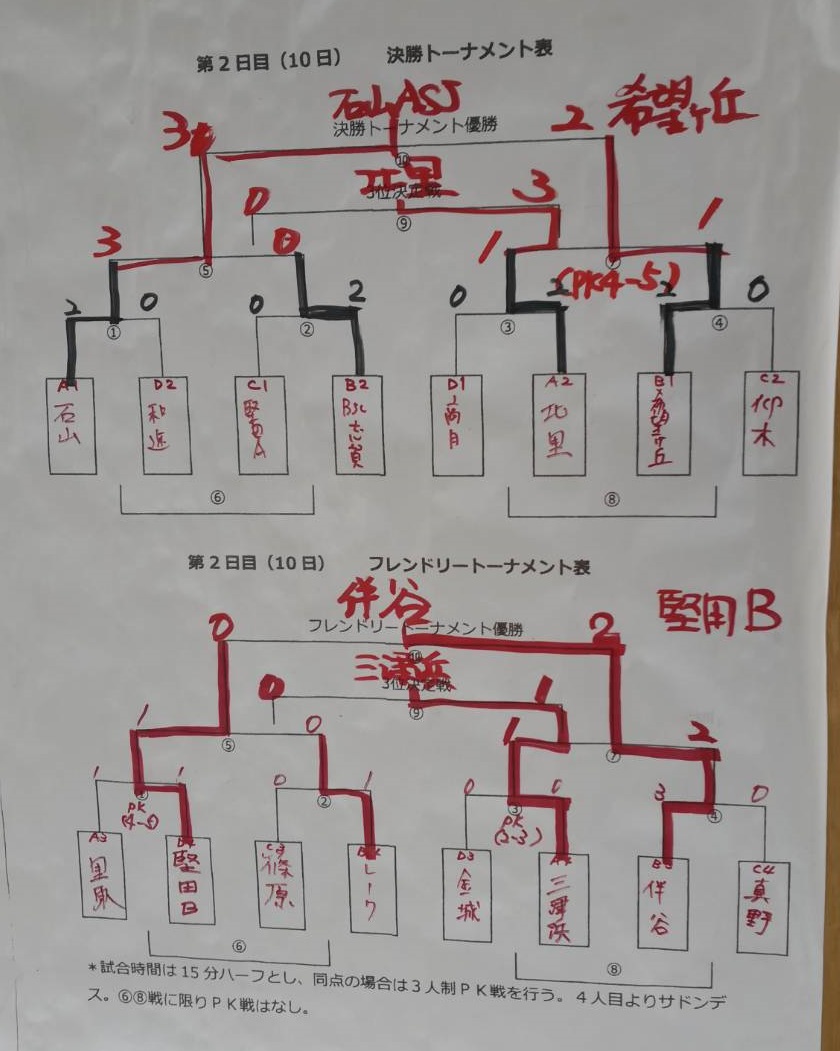 第２日目（10日） 決勝トーナメント表
石山ASJ
決勝トーナメント優勝
3 2 希望ヶ丘
⑩
北里
3位決定戦
0 3
⑨
3 0 1 1
⑤ ⑦
(PK4-5)
2 0 0 2 0 2 2 0
① ② ③ ④
A1 D2 C1 B2 D1 A2 B1 C2
石山 和邇 堅田A BSC志賀 北里 希望ヶ丘 仰木
⑥ ⑧
第２日目（10日） フレンドリートーナメント表
伴谷 堅田B
フレンドリートーナメント優勝
0 2
⑩
三津浜
3位決定戦
0 1
⑨
1 0 1 2
⑤ ⑦
1 1 0 1 0 0 3 0
② ③ ④
PK PK
A3 D3 C4
堅田B 篠原 レーク 金城 三津浜 伴谷 真野
⑥ ⑧
＊試合時間は15分ハーフとし、同点の場合は３人制ＰＫ戦を行う。４人目よりサドンデ
ス。⑥⑧戦に限りＰＫ戦はなし。